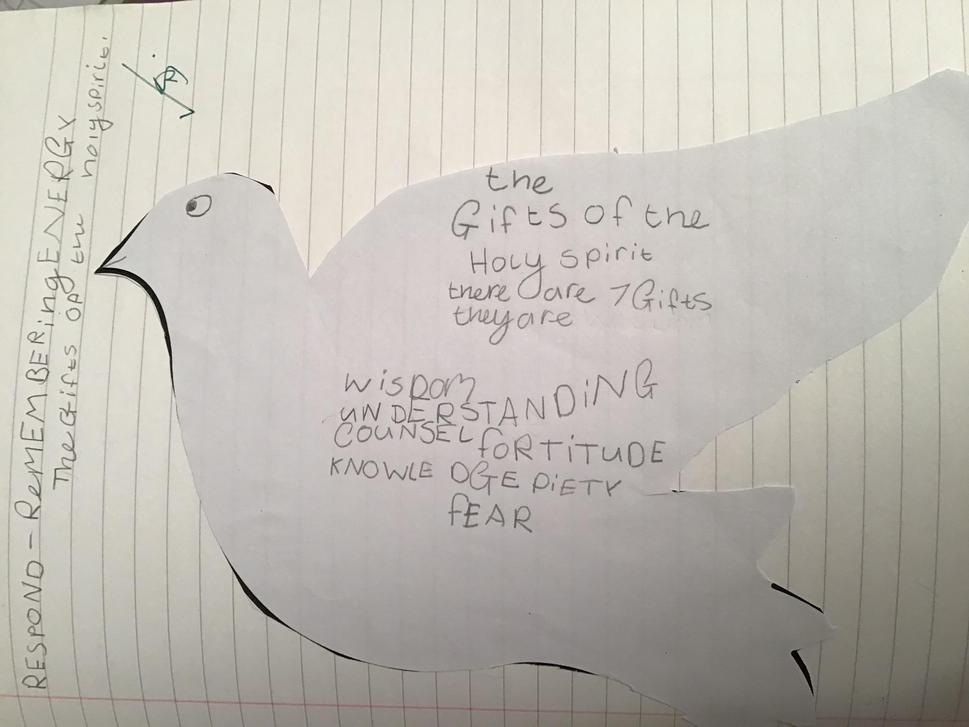 RESPOND - REMEMBERiNg ENERGY
The Gifts of the holy spirit.
the
Gifts of the
Holy spirit
there are 7 Gifts
they are
wisDom
UNDERSTANDiNG
COUNSEL foRTiTUDE
KNOWLEDGE PiETY
fEAR